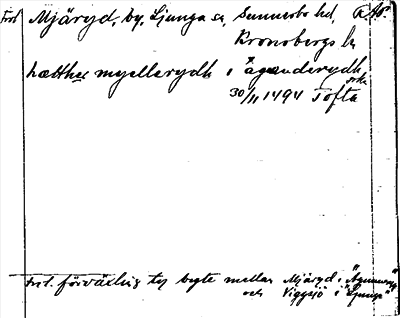 Mjäryd, by, Ljunga sn, Sunnerbo hd,
Kronobergs l.
hætthe myellerydh i agunderydh
30/11 1494 Tofta
förväxling ty byte mellan Mjäryd i "Agunnaryd"
och Viggsjö i "Ljunga"